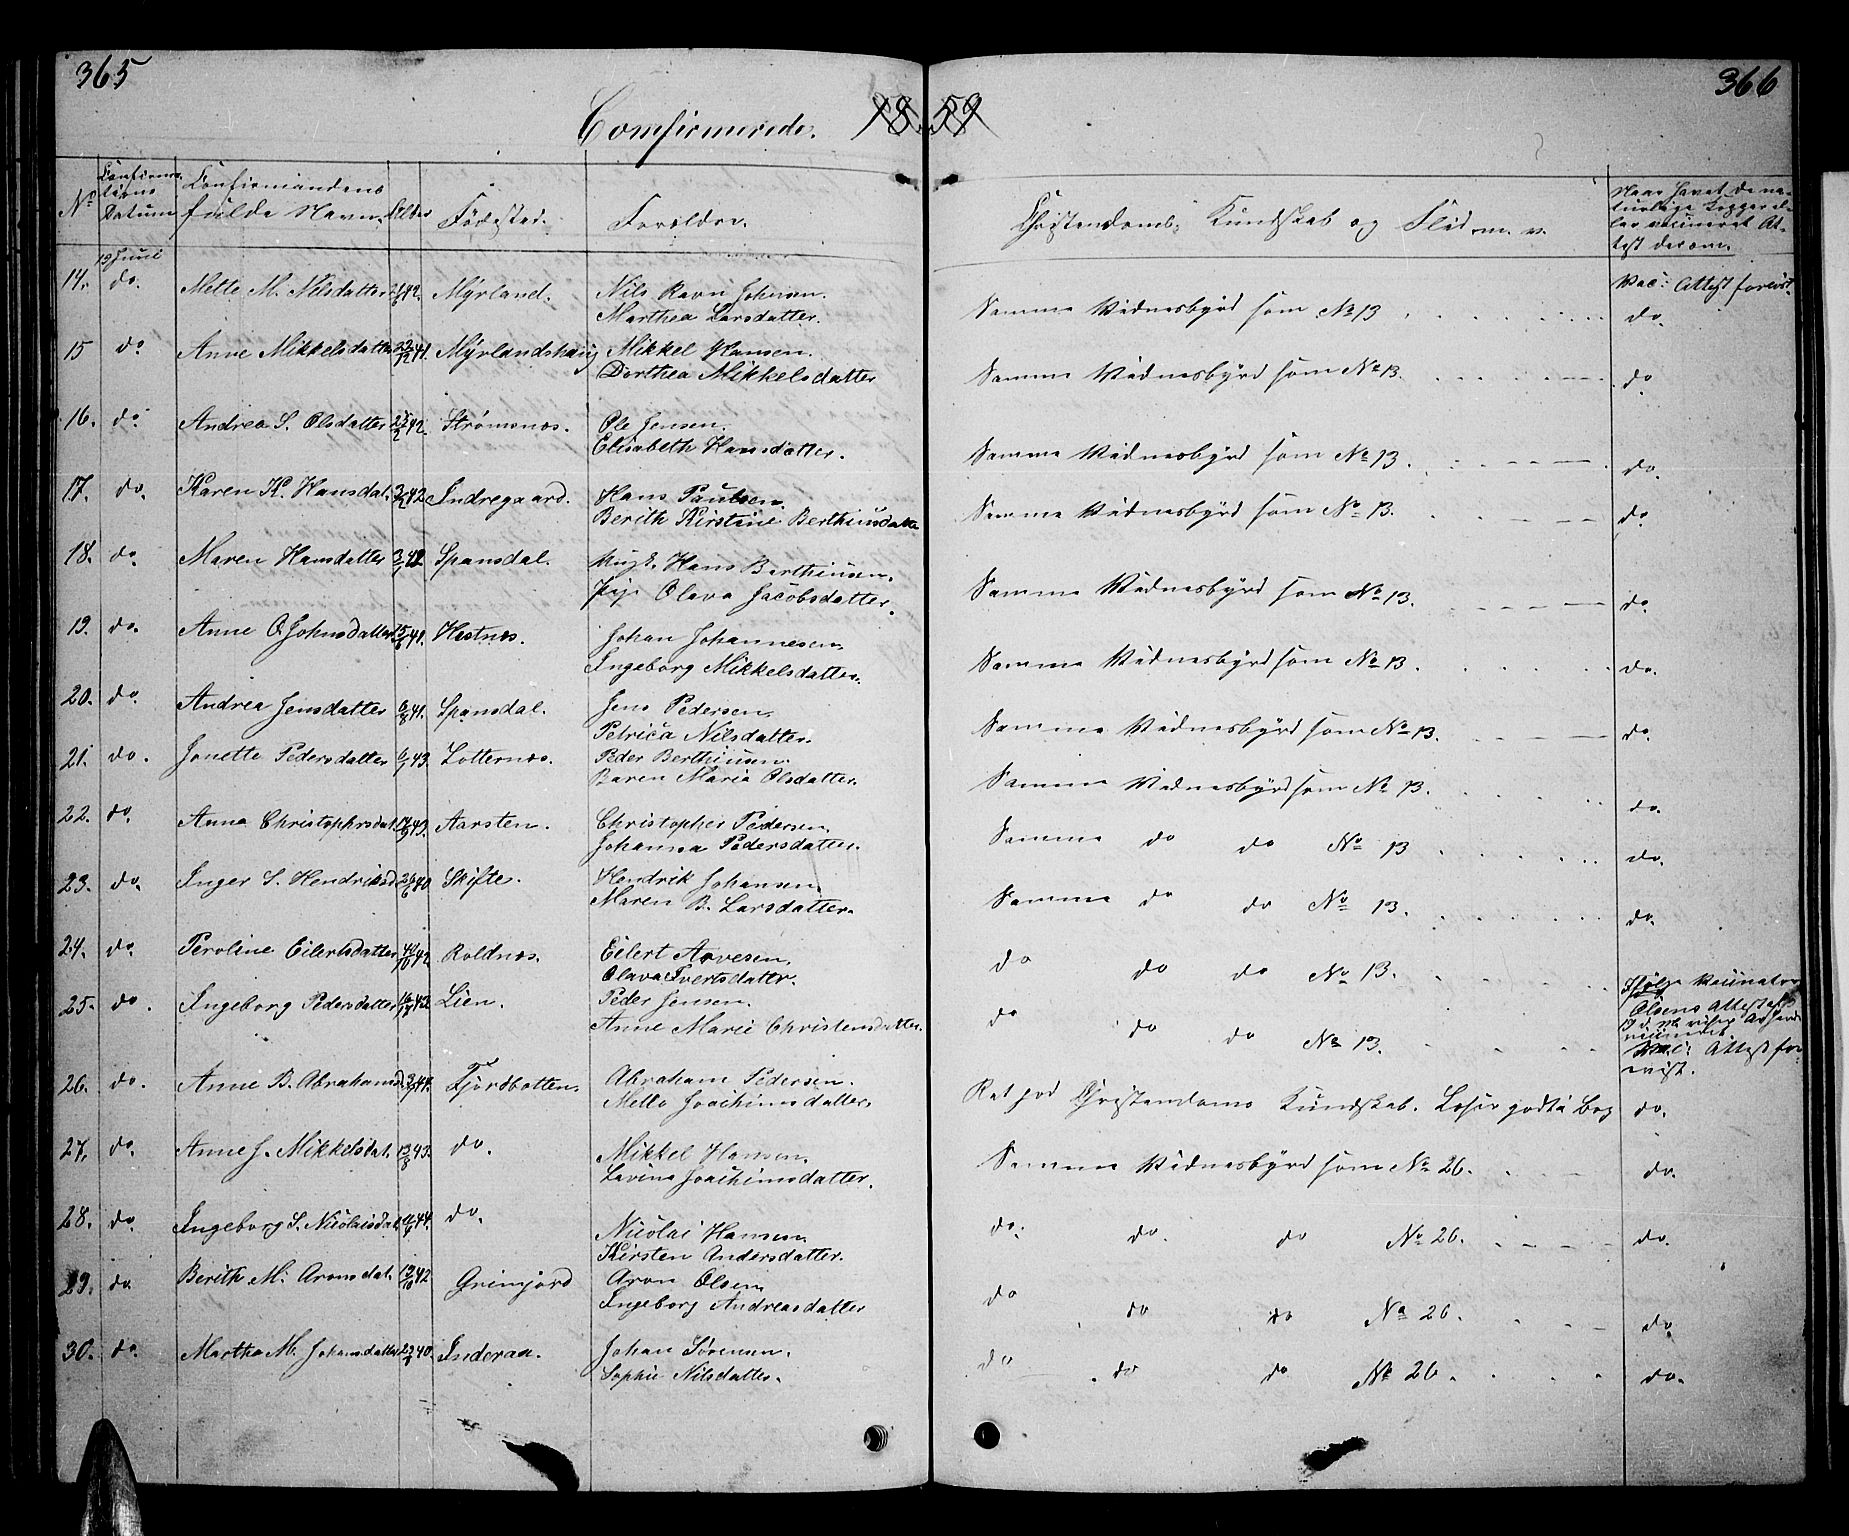 365
366
Comfirmerede. 1859
No
Confirma-
tions
Datum
Confirmandens
fulde Navn.
Alder
Födested.
Forældre.
Christendoms Kundskab og Flid m. v.
Naar havt de na-
turlige Kopper el-
ler vaccineret At-
test derom.
19 Juni
14. do. Mette M. Nilsdatter 42. Myrland. Nils Ravn Johnsen.
Marthea Larsdatter.
Samme Vidnesbyrd som No 13
Vac: Attest foreviist.
do.
15 do Anne Mikkelsdatter 22/12 41. Myrlandshaug Mikkel Hansen.
Dorthea Mikkelsdatter
Samme Vidnesbyrd som No 13. do
16. do. Andrea S. Olsdatter 42. Strømsnes. Ole Jensen.
Elisabeth Hansdatter.
Samme Vidnesbyrd som No 13. do.
17. do. Karen K. Hansdat. 42 Indregaard. Hans Paulsen.
Berith Kirstine Berthiusdatte
Samme Vidnesbyrd som No 13. do.
18. do. Maren Hansdatter 42. Spansdal. Ungk. Hans Berthiusen.
Pige Olava Jacobsdatter.
Samme Vidnesbyrd som No 13. do.
19. do. Anne O. Johnsdatter 41. Hestnes. Johan Johannesen.
Ingeborg Mikkelsdatter.
Samme Vidnesbyrd som No 13. do.
20. do. Andrea Jensdatter 6/8 41. Spansdal. Jens Pedersen.
Petrica Nilsdatter.
Samme Vidnesbyrd som No 13. do.
21. do. Jonette Pedersdatter 43. Lotternes. Peder Berthiusen.
Baren Maria Olsdatter.
Samme Vidnesbyrd som No 13. do.
22. do. Anna Christophrsdat. 43. Aarsten. Christopher Pedersen.
Johanna Pedersdatter.
Samme do do No 13 do.
23. do. Inger S. Hendriksd 26/6 40 Skifte. Hendrik Johansen.
Maren B. Larsdatter.
Samme do do No 13. do.
24. do. Peroline Eilertsdatter 42. Roldnes. Eilert Arvesen.
Olava Ivertsdatter.
do do do No 13.
25. do. Ingeborg Pedersdatter 43. Lien. Peder Jensen.
Anne Marie Christensdatter.
do do do No 13.
Ifölge Vaccinator
Olsens Attest af
Vac: Attest fo-
revist.
26. do. Anne B. Abrahamsd. 44. Fjordbotten. Abraham Pedersen.
Mette Joachimsdatter.
Ret god Christendoms Kundskab. Læser godt i Bog do.
27. do. Anne J. Mikkelsdat. 13/8 43. do. Mikkel Hansen.
Lavina Joachimsdatter.
Samme Vidnesbyrd som No 26. do.
28. do. Ingeborg S. Nicolaisdat. 44. do. Nicolai Hansen.
Kirsten Andersdatter.
do. do. do No 26. do.
29. do. Berith M. Aronsdat. 19/10 42 Grimjord Aron Olsen
Ingeborg Andreasdatter
do do do No 26. do.
30. do. Martha M. Johansdatter 40. Inderaa. Johan Sörensen.
Sophie Nilsdatter.
do do do No 26. do.